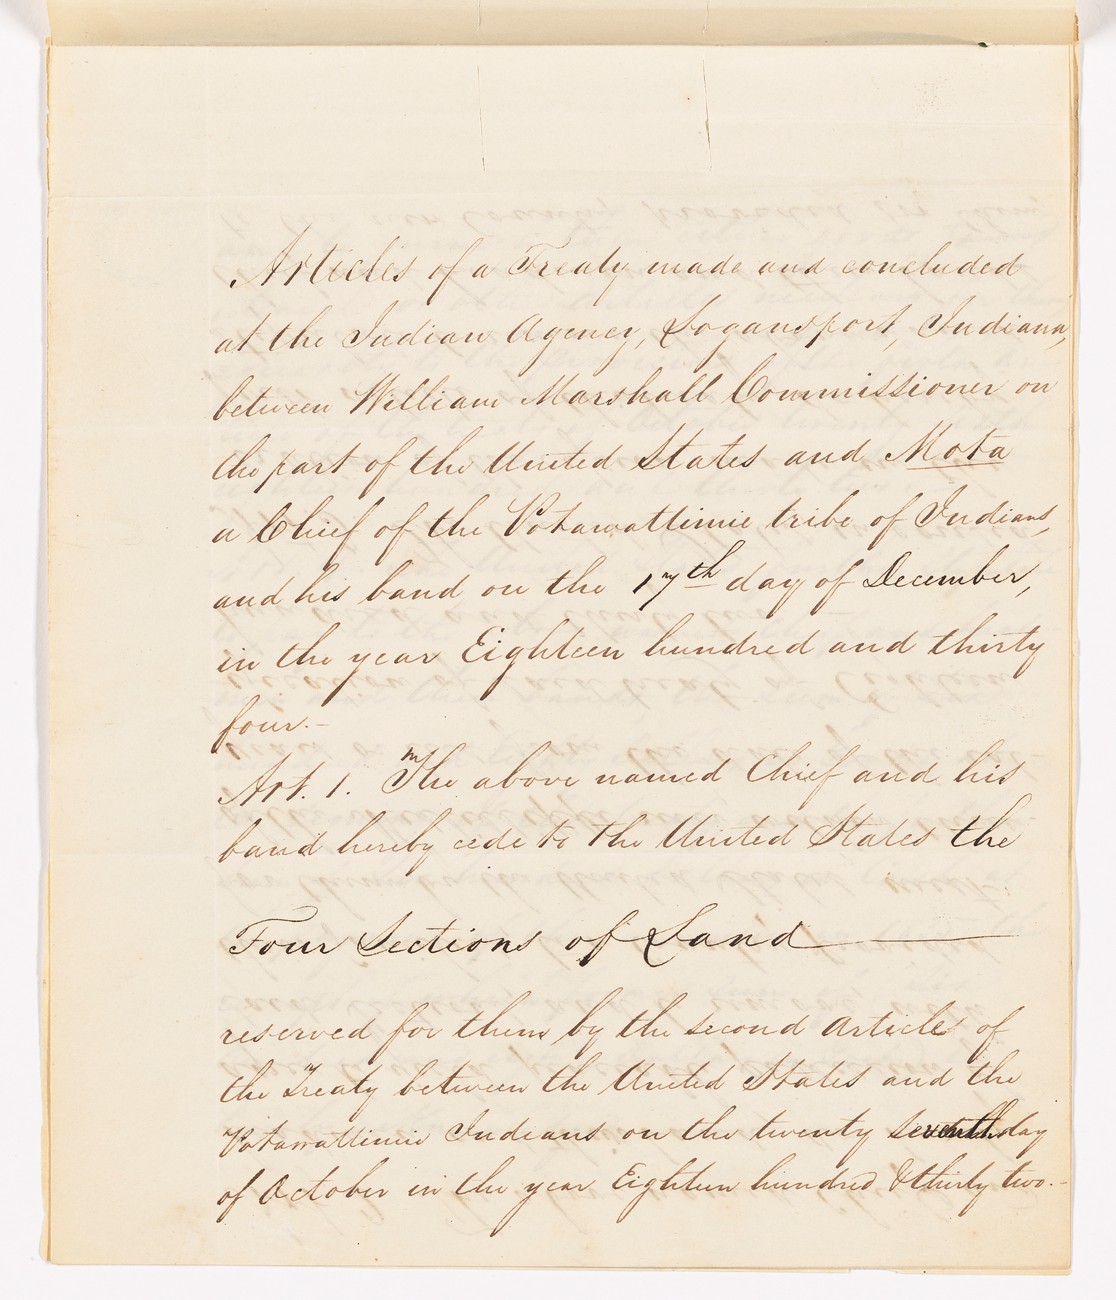 Articles of a Treaty made and concluded
at the Indian Agency, Logansport, Indiana,
between William Marshall Commissioner on
the part of the United States and Mota
a Chief of the Potawattimie tribe of Indians,
and his band on the 17th day of December,
in the year Eighteen hundred and thirty
four.-
Art. 1. The above named Chief and his
band hereby cede to the United States the
Four Sections of Land
reserved for them by the second Article of
the Treaty between the United States and the
Potawattimie Indians on the twenty seventh day
of October in the year Eighteen hundred & thirty two.-